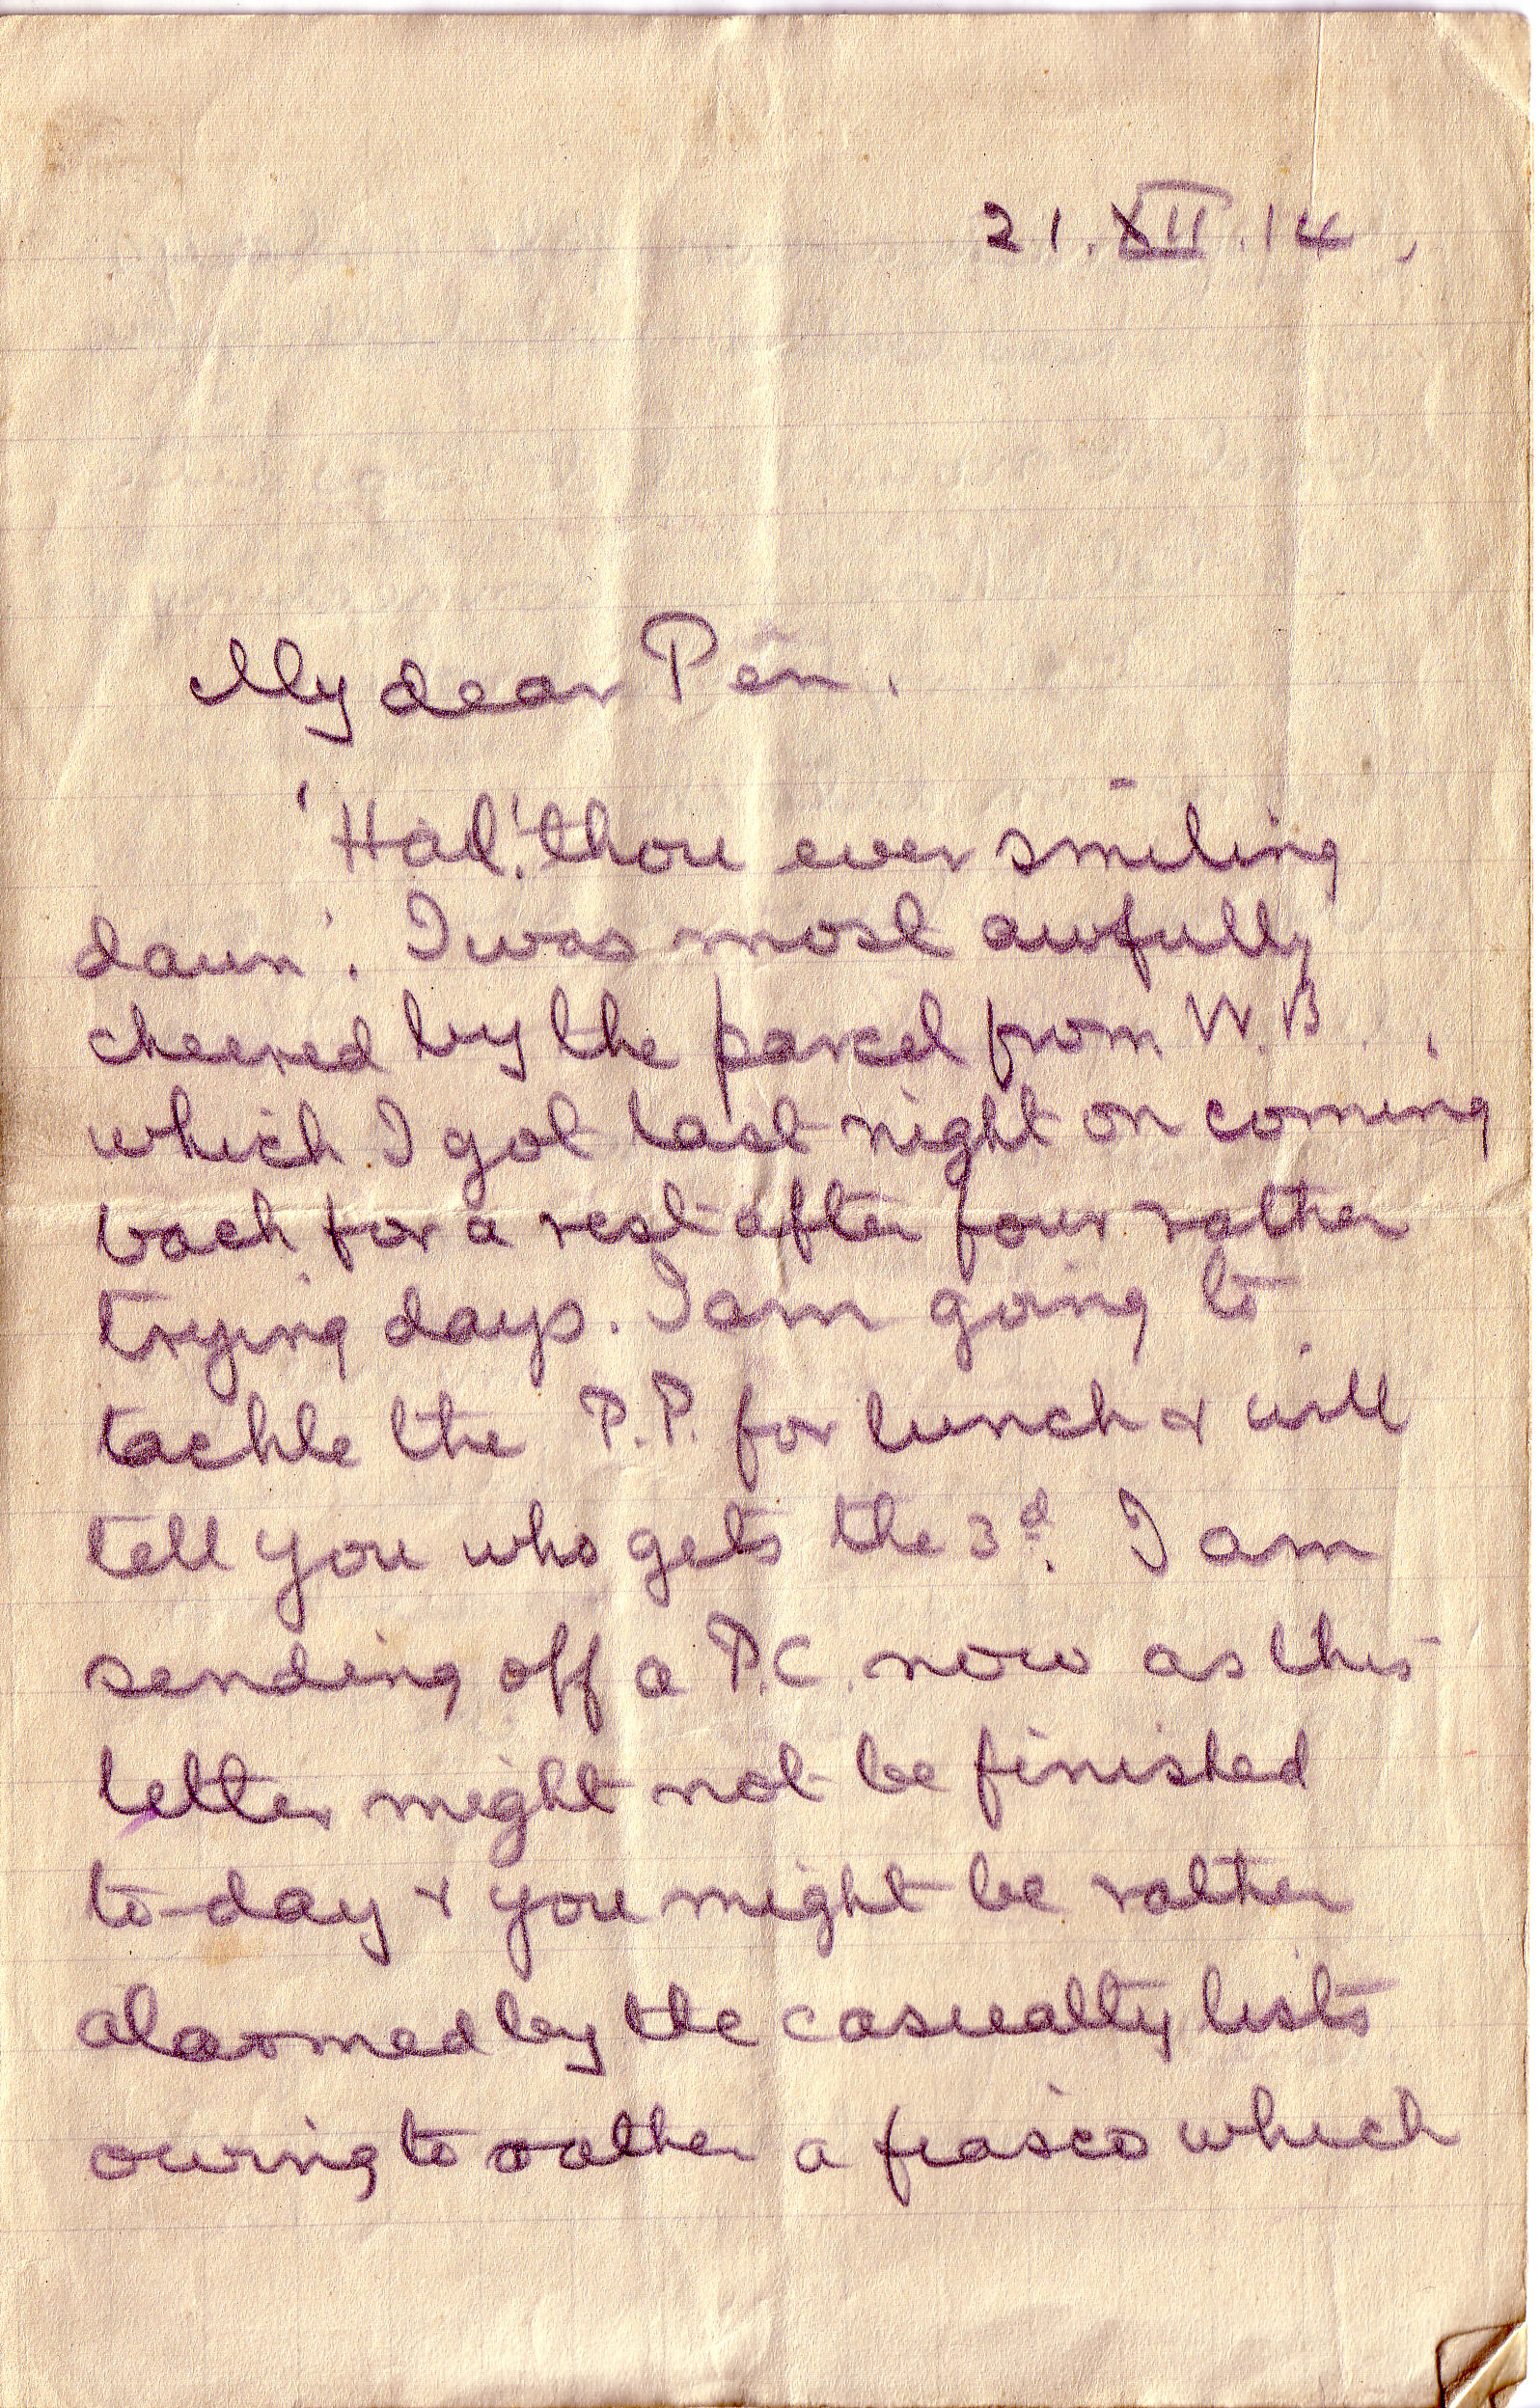 21.XII.14,
My dear Pen.
'Hail!' thou ever smiling
dawn'. I was most awfully
cheered by the parcel from W.B.,
which I got last night on coming
back for a rest after four rather
trying days. I am going to
tackle the P.P. for lunch & will
tell you who gets the 3d. I am
sending off a P.C. now as this
letter might not be finished
to-day & you might be rather
alarmed by the casualty lists
owing to rather a fiasco which